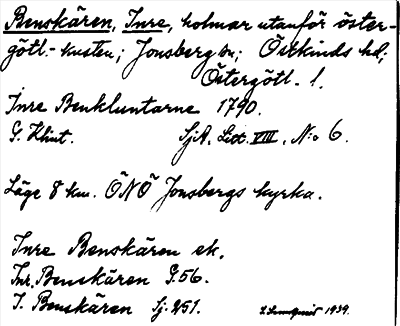 Benskären, Inre, holmar utanför öster-
götl.-kusten; Jonsberg sn; Östkinds hd;
Östergötl. l.
Inre Benkluntarne 1790.
G. Klint. SjA. Litt. VIII. No 6.
Läge 8 km. ÖNÖ Jonsbergs kyrka.
Inre Benskären ek.
Inr. Benskären G.56.
I. Benskären Sj: 251. 1939.